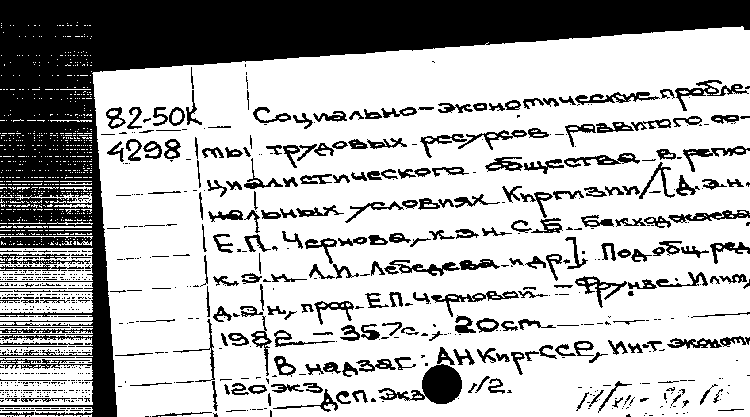 82-50К Социально-экономические пробле-
4298 мы трудовых ресурсов развитого со-
циалистического общества в регио-
нальных условиях Киргизии/[Д.э.н.
Е.П. Чернова, к.э.н. С.Б. Бекходжаева,
к.э.н. Л.И. Лебедева и др.]; Под общ. ред.
д.э.н, проф. Е.П. Черновой. – Фрунзе: Илим,
1982. – 357с.; 20см.
В надзаг: АН КиргССР, Ин-т экономи
120 экз. ДСП. Экз №2.